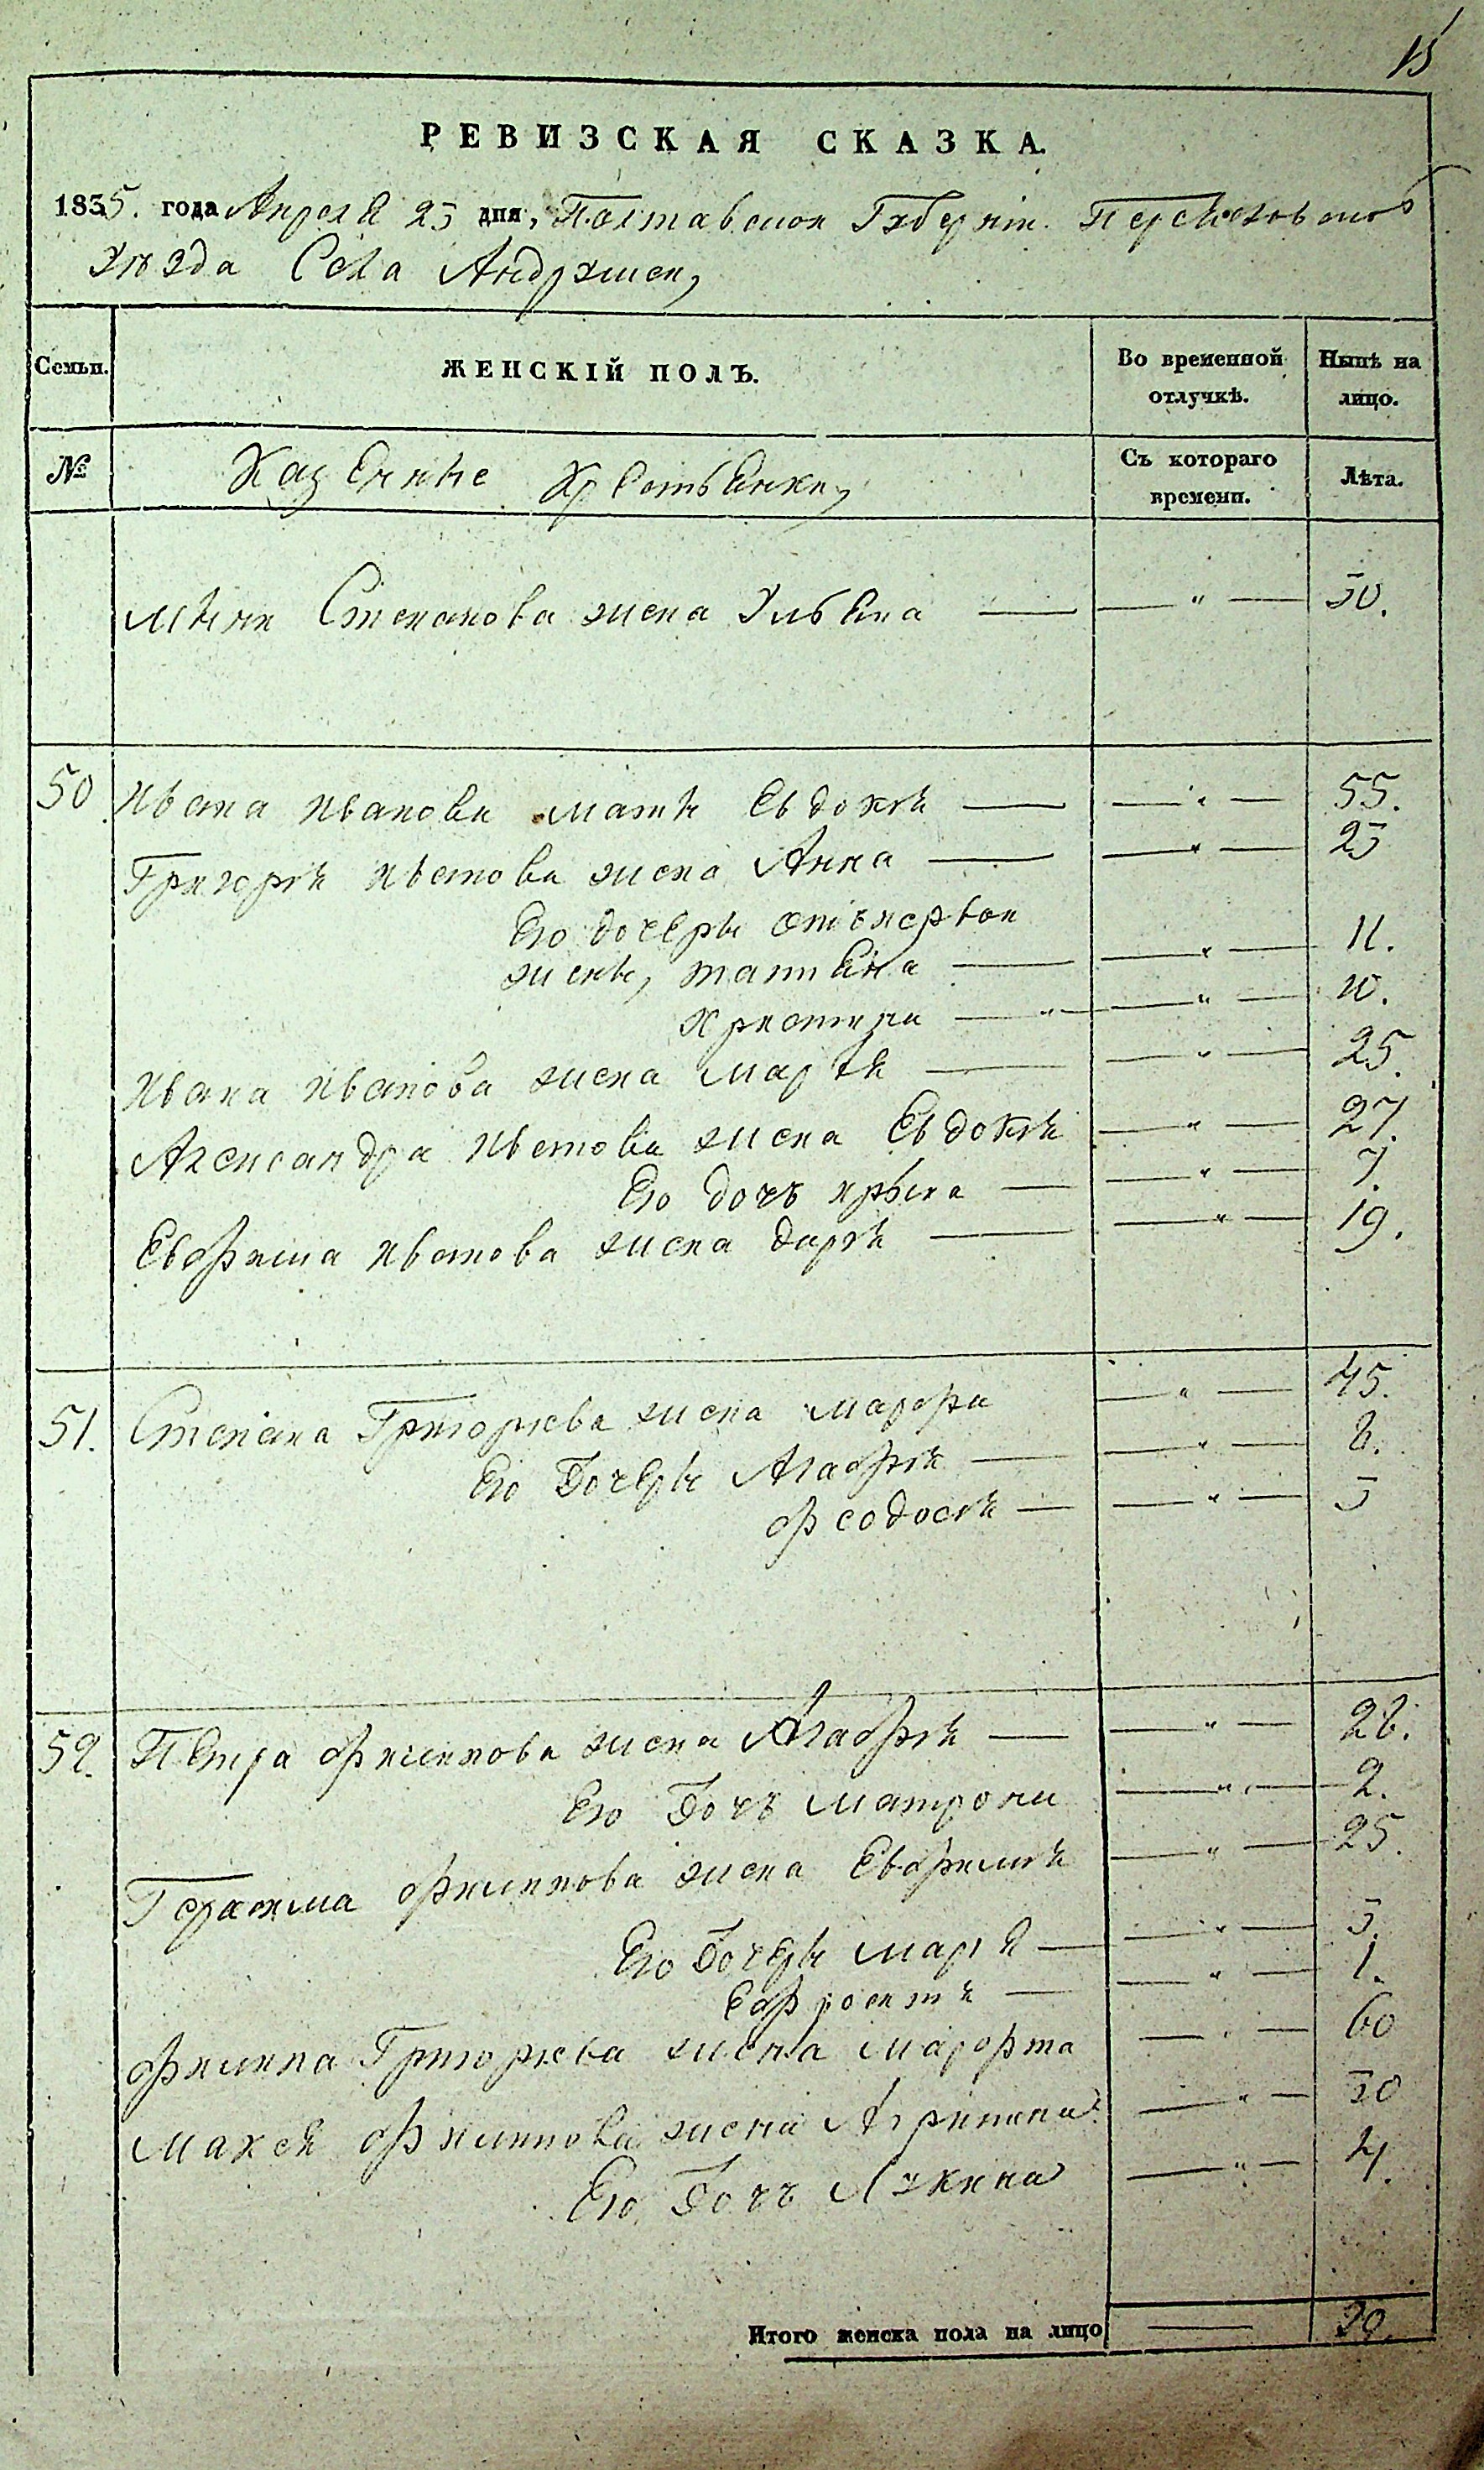 15
РЕВИЗСКАЯ СКАЗКА.
1835. года Апреля 25 дня, Полтавской Губерніи. Переяславского
Уѣзда Села Андрушек,
Семьи. ЖЕНСКІЙ ПОЛЪ. Во временной отлучкѣ. Нынѣ на лицо.
№ Казенные Крестьянки, Съ котораго времени. Лѣта.
Степанова жена Ульяна — " — 50.
50 Ивана Иванова мать Евдокія — " — 55.
Григорія Иванова жена Анна — " — 25
Его дочеры отъ первой
жены, татьяна — " — 11.
христина — " — 10.
Ивана Иванова жена Марія — " — 25.
Александра Иванова жена Евдокія — " — 27.
Его дочь ирына — " — 7.
Евфима Иванова жена дарія — " — 19.
51. Степана Григорьева жена марфа — " — 45.
Его дочеры Агафія — " — 8.
феодосія — " — 5
52. Петра филипова жена Агафія — " — 28.
Его дочь матрона — " — 2.
Герасима филипова жена Евфимія — " — 25.
Его дочеры марія — " — 5.
Ефросинія — " — 1.
филипа Григорьева жена марфа — " — 60
филипова жена Агрипина — " — 30
Его дочь Лукина — " — 4.
Итого женска пола на лицо — 20.